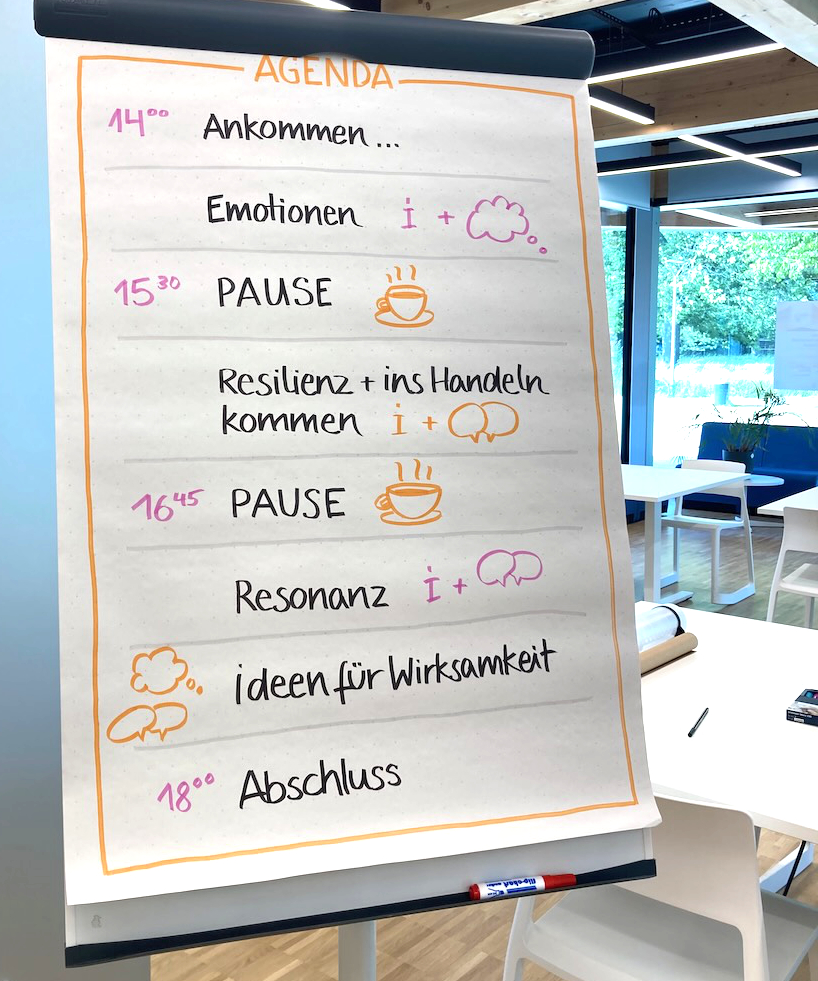 AGENDA
14⁰⁰ Ankommen ...
Emotionen i +
15³⁰ PAUSE
Resilienz + ins Handeln
kommen i +
16⁴⁵ PAUSE
Resonanz i +
ideen für Wirksamkeit
18⁰⁰ Abschluss